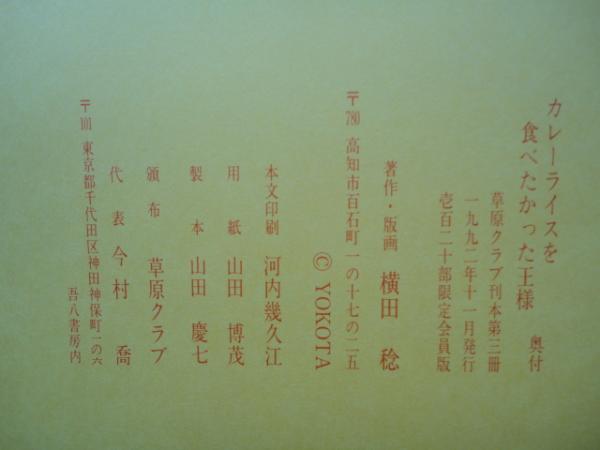 カレーライスを
食べたかった王様　奥付
草原クラブ刊本第三冊
一九九二年十一月発行
壱百二十部限定会員版
著作・版画　横田　稔
〒780 高知市百石町一の十七の二五
© YOKOTA
本文印刷　河内幾久江
用　紙　山田　博茂
製　本　山田　慶七
頒　布　草原クラブ
代　表　今　村　喬
〒101 東京都千代田区神田神保町一の六
吾八書房内